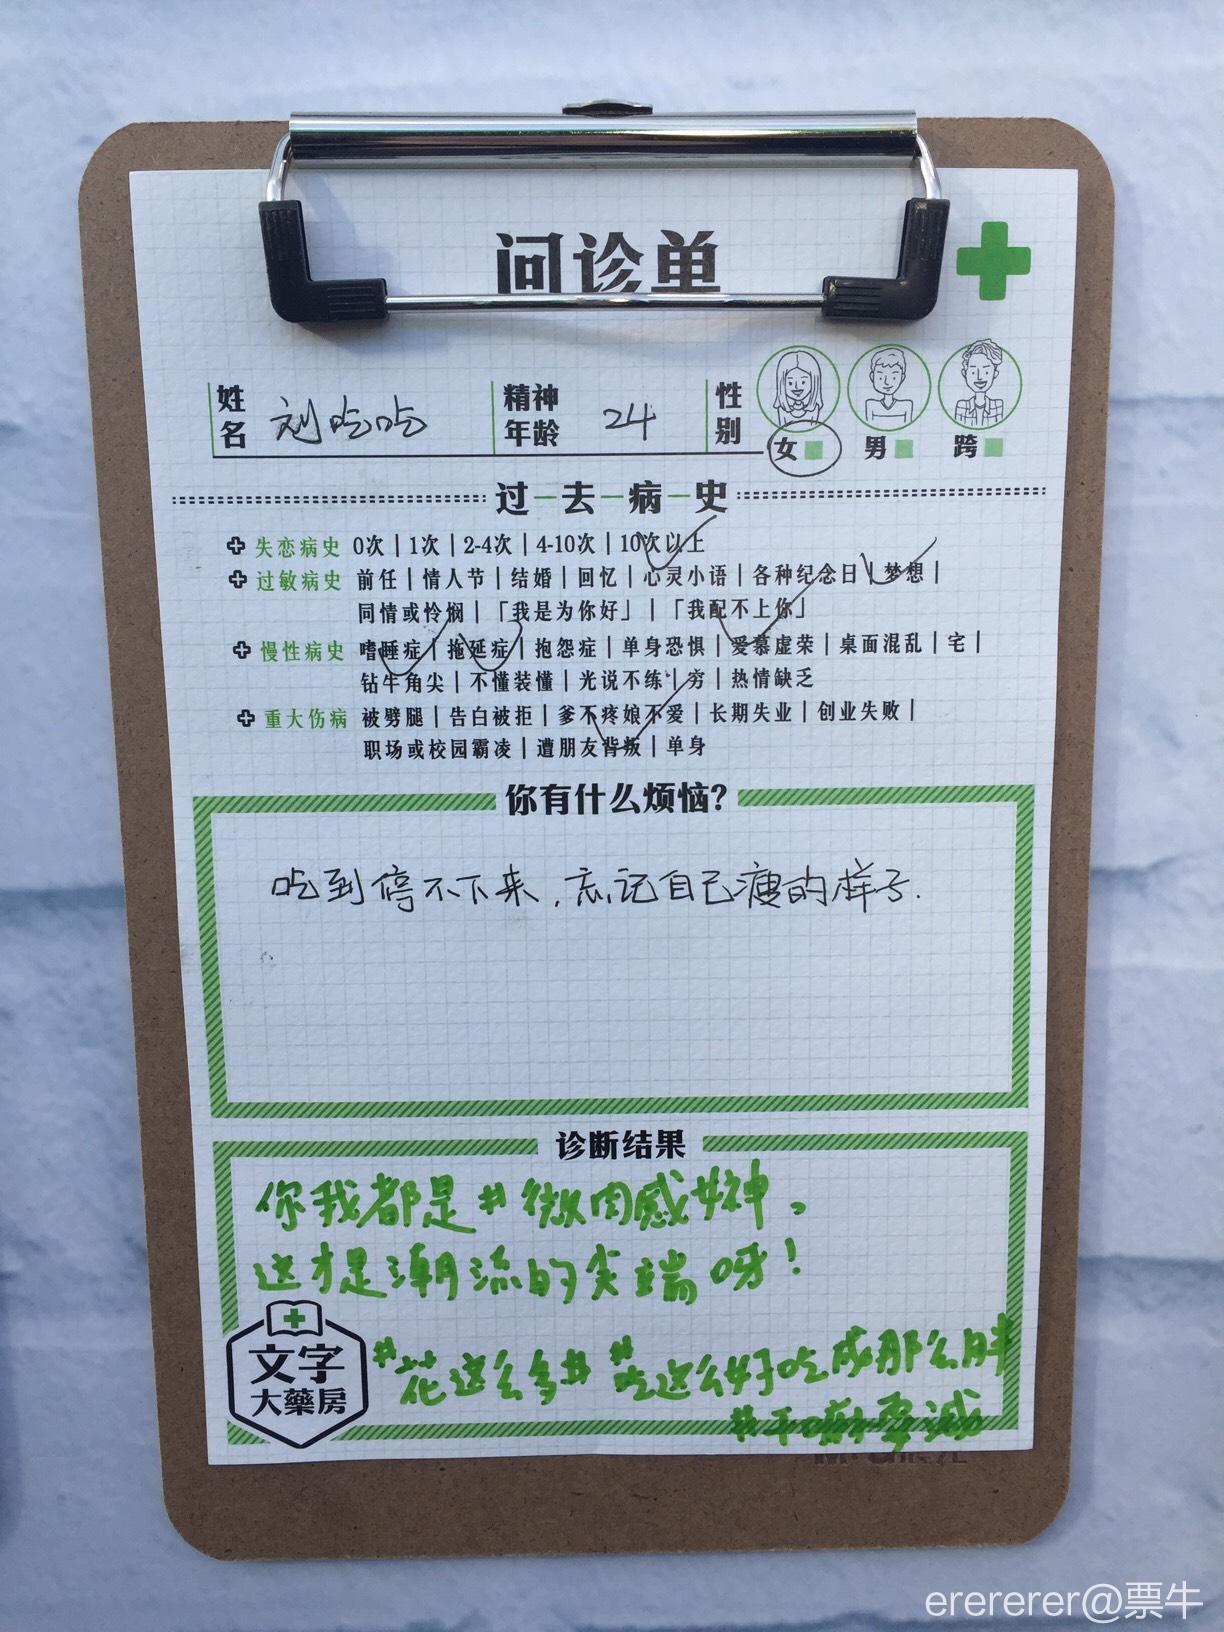 问诊单
姓名 刘吃吃 精神年龄 24 性别 女 男 跨
过去病史
失恋病史 0次|1次|2-4次|4-10次|10次以上
过敏病史 前任|情人节|结婚|回忆|心灵小语|各种纪念日|梦想|
同情或怜悯|「我是为你好」|「我配不上你」
慢性病史 嗜睡症|拖延症|抱怨症|单身恐惧|爱慕虚荣|桌面混乱|宅|
钻牛角尖|不懂装懂|光说不练|穷|热情缺乏
重大伤病 被劈腿|告白被拒|爹不疼娘不爱|长期失业|创业失败|
职场或校园霸凌|遭朋友背叛|单身
你有什么烦恼?
吃到停不下来,忘记自己瘦的样子.
诊断结果
你我都是#微肉感女神。
这才是潮流的尖端呀!
文字
大藥房
#花这么多# #吃这么好吃成那么胖
erererer@票牛